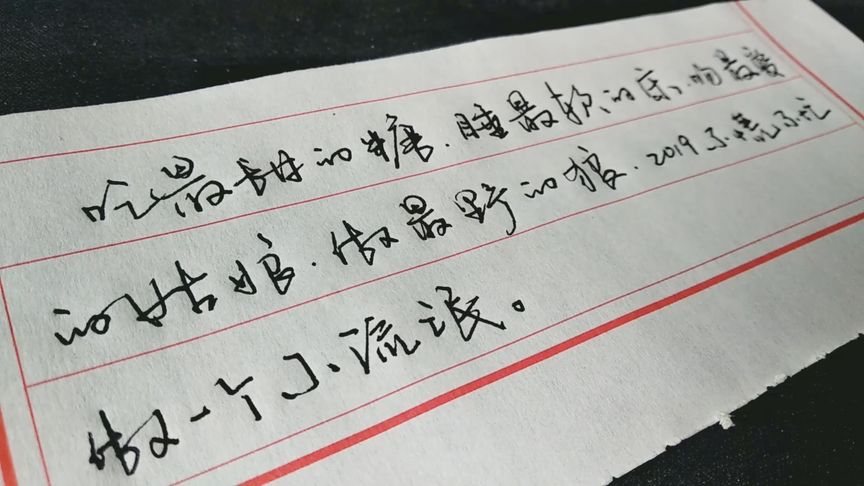 吃最甜的糖.睡最软的床、吻最爱
的姑娘.做最野的狼.2019不慌不忙
做一个小流氓。